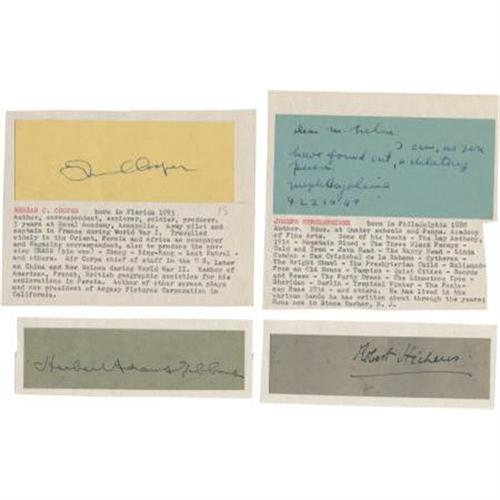 MERIAN C. COOPER born in Florida 1893
Author, correspondent, explorer, soldier, producer.
3 years at Naval Academy, Annapolis. Army pilot and
captain in France during World War I. Travelled
widely in the Orient, Persia and Africa as newspaper
and magazine correspondent, also to produce the
movies GRASS - Chang - King-Kong - Lost Patrol -
and others. Air Corps chief of staff in the U.S. Later
in China and New Guinea during World War II. Member of
American, French, British organizations for his
explorations in Persia. Author of other screen plays and
now president of Argosy Pictures Corporation in
California.
15
Dear Mr.
I am, as you
have found out, a dilatory
person.
Joseph Hergesheimer
JOSEPH HERGESHEIMER born in Philadelphia 1880
Author. Educ. at Quaker schools and Penna. Academy
of Fine Arts. Some of his books - The Lay Anthony,
1914 - Mountain Blood - The Three Black Pennys -
Gold and Iron - Java Head - The Happy End - Linda
Condon - San Cristobal de la Habana - Cytherea -
The Bright Shawl - The Presbyterian Child - Balisand-
From an Old House - Tampico - Quiet Cities - Swords
and Roses - The Party Dress - The Limestone Tree -
Sheridan - Berlin - Tropical Winter - The Foolscap
Rose 1934 - and others. He has lived in the
various lands he has written about through the years;
Home now in Stone Harbor, N. J.
Herbert Adams Gibbons
Robert Hichens